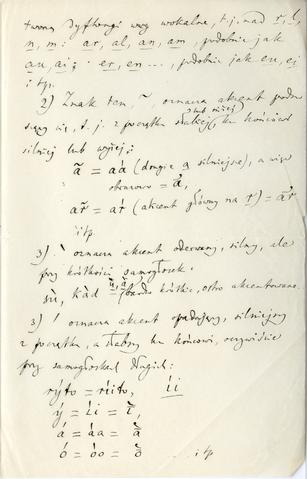 tworzą dyftongi wraz wokalne, t. j. nad r, l,
n, m: ar, al, an, am, podobnie jak
au, ai; er, en..., podobnie jak eu, ei
i tp.
2) Znak ten, ~, oznacza akcent
się, t. j. z początku słabiej, ku końcowi
lub niżej
silniej lub wyżej:
ã = aá (drugie a silniejsze), a więc
obrazowo =
ar̃ = aŕ (akcent główny na r) =
itp.
3) ` oznacza akcent oderwany, silny, ale
przy krótkości samogłosek.
sù, kàd bardzo krótkie, ostro akcentowane.
3) ´ oznacza akcent spadający, silniejszy
z początku, a słabszy ku końcowi, oczywiście
przy samogłoskach długich:
rýto = ríito, íi
ý = íi =
á = áa =
ó = óo =
itp